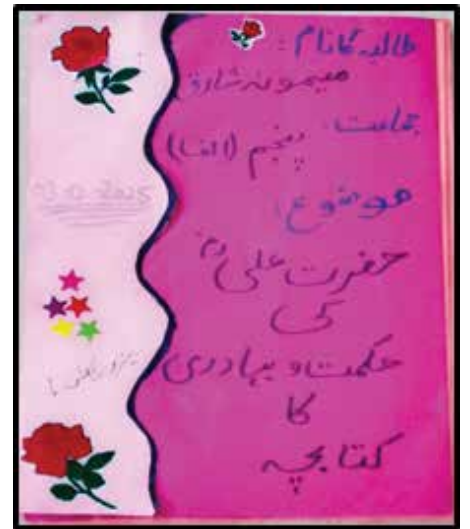 طالبہ کا نام:
میمونہ شارق
جماعت:
پنجم (الف)
موضوع:
حضرت علیؓ
کی
حکمت و بہادری
کا
کتابچہ
2025